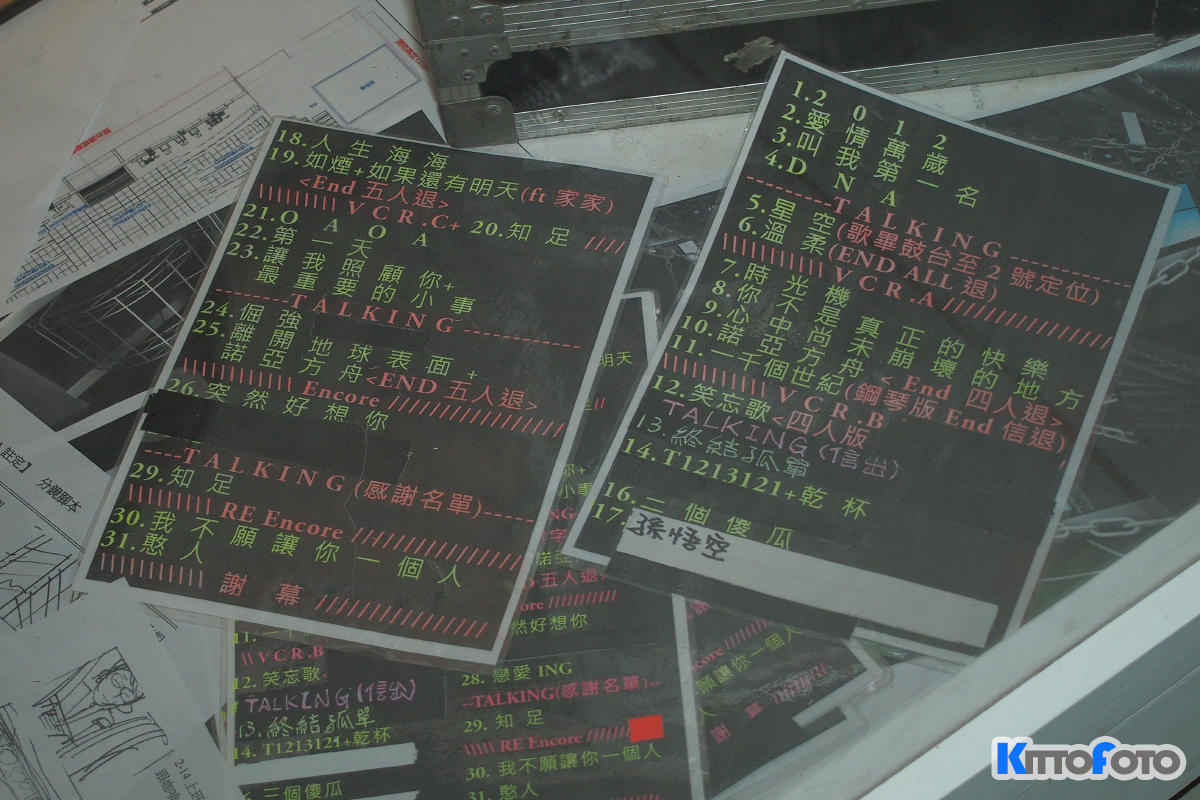 18.人生海海
19.如煙+如果還有明天(ft 家家)
<End 五人退>
\\\\\\\\\\ V C R .C+ 20.知足 ////
21.O A O A
22.第一天
23.讓我照顧你+
最重要的小事
-------T A L K I N G------------
24.倔強
25.離開地球表面+
諾亞方舟<END 五人退>
\\\\\\\\\\\\ Encore ////////////////////
26.突然好想你
----T A L K I N G (感謝名單)-----
29.知足
\\\\\\\\\\ RE Encore ////////////////////
30.我不願讓你一個人
31.憨人
\\\\\\\\\\ 謝幕 //////////////////
1.2 0 1 2
2.愛情萬歲
3.叫我第一名
4.D N A
-------T A L K I N G------------
5.星空(歌畢鼓台至 2 號定位)
6.溫柔(END ALL 退)
\\\\\\\\\\\\ V C R .A///////////////////
7.時光機真正的快樂
8.你不是真正的快樂
9.心中尚未崩壞的地方
10.諾亞方舟 < End 四人退>
11.一千個世紀(鋼琴版 End 信退)
\\\\\\\\\\\\ V C R .B
12.笑忘歌<四人版
TALKING (信出)
13.終結孤單
14.T1213121+乾杯
16.三個傻瓜
17.孫悟空
註定】
分鏡腳本
明天
你+
小事
諾亞
五人退>
ore //////////
然好想你
\\ V C R.B
12. 笑忘歌
TALKING (信出)
13.終結孤單
14. T1213121+乾杯
三個傻瓜
28. 戀愛 ING
--TALKING(感謝名單)--
29. 知足
\\\\\ RE Encore ///////
30. 我不願讓你一個人
31. 憨人
core //////
願讓你一個人
人
謝幕
2-14 上班
KITTOFOTO